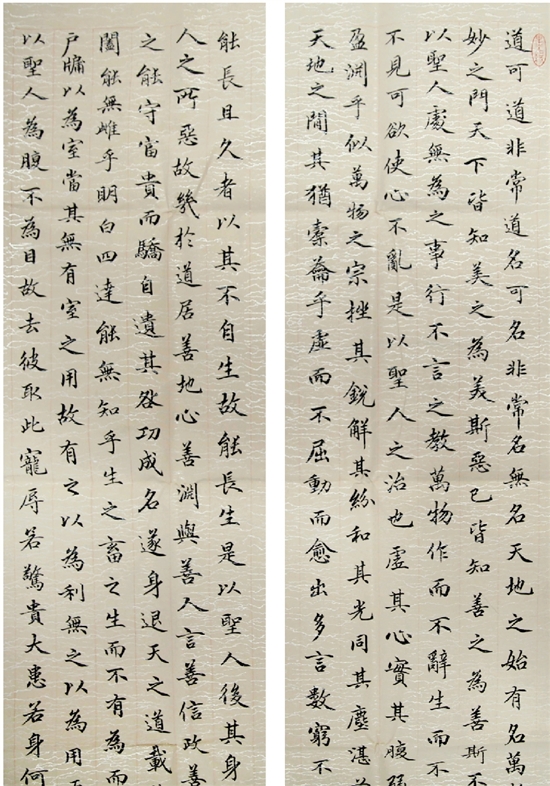 道可道非常道名可名非常名無名天地之始有名萬
妙之門天下皆知美之為美斯惡已皆知善之為善斯不
以聖人處無為之事行不言之教萬物作而不辭生而不
不見可欲使心不亂是以聖人之治也虛其心實其腹
盈淵乎似萬物之宗挫其銳解其紛和其光同其塵湛
天地之間其猶橐籥乎虛而不屈動而愈出多言數窮不
能長且久者以其不自生故能長生是以聖人後其身
人之所惡故幾於道居善地心善淵與善人言善信政善
之能守富貴而驕自遺其咎功成名遂身退天之道載
闔能無雌乎明白四達能無知乎生之畜之生而不有為而
戶牖以為室當其無有室之用故有之以為利無之以為用
以聖人為腹不為目故去彼取此寵辱若驚貴大患若身何